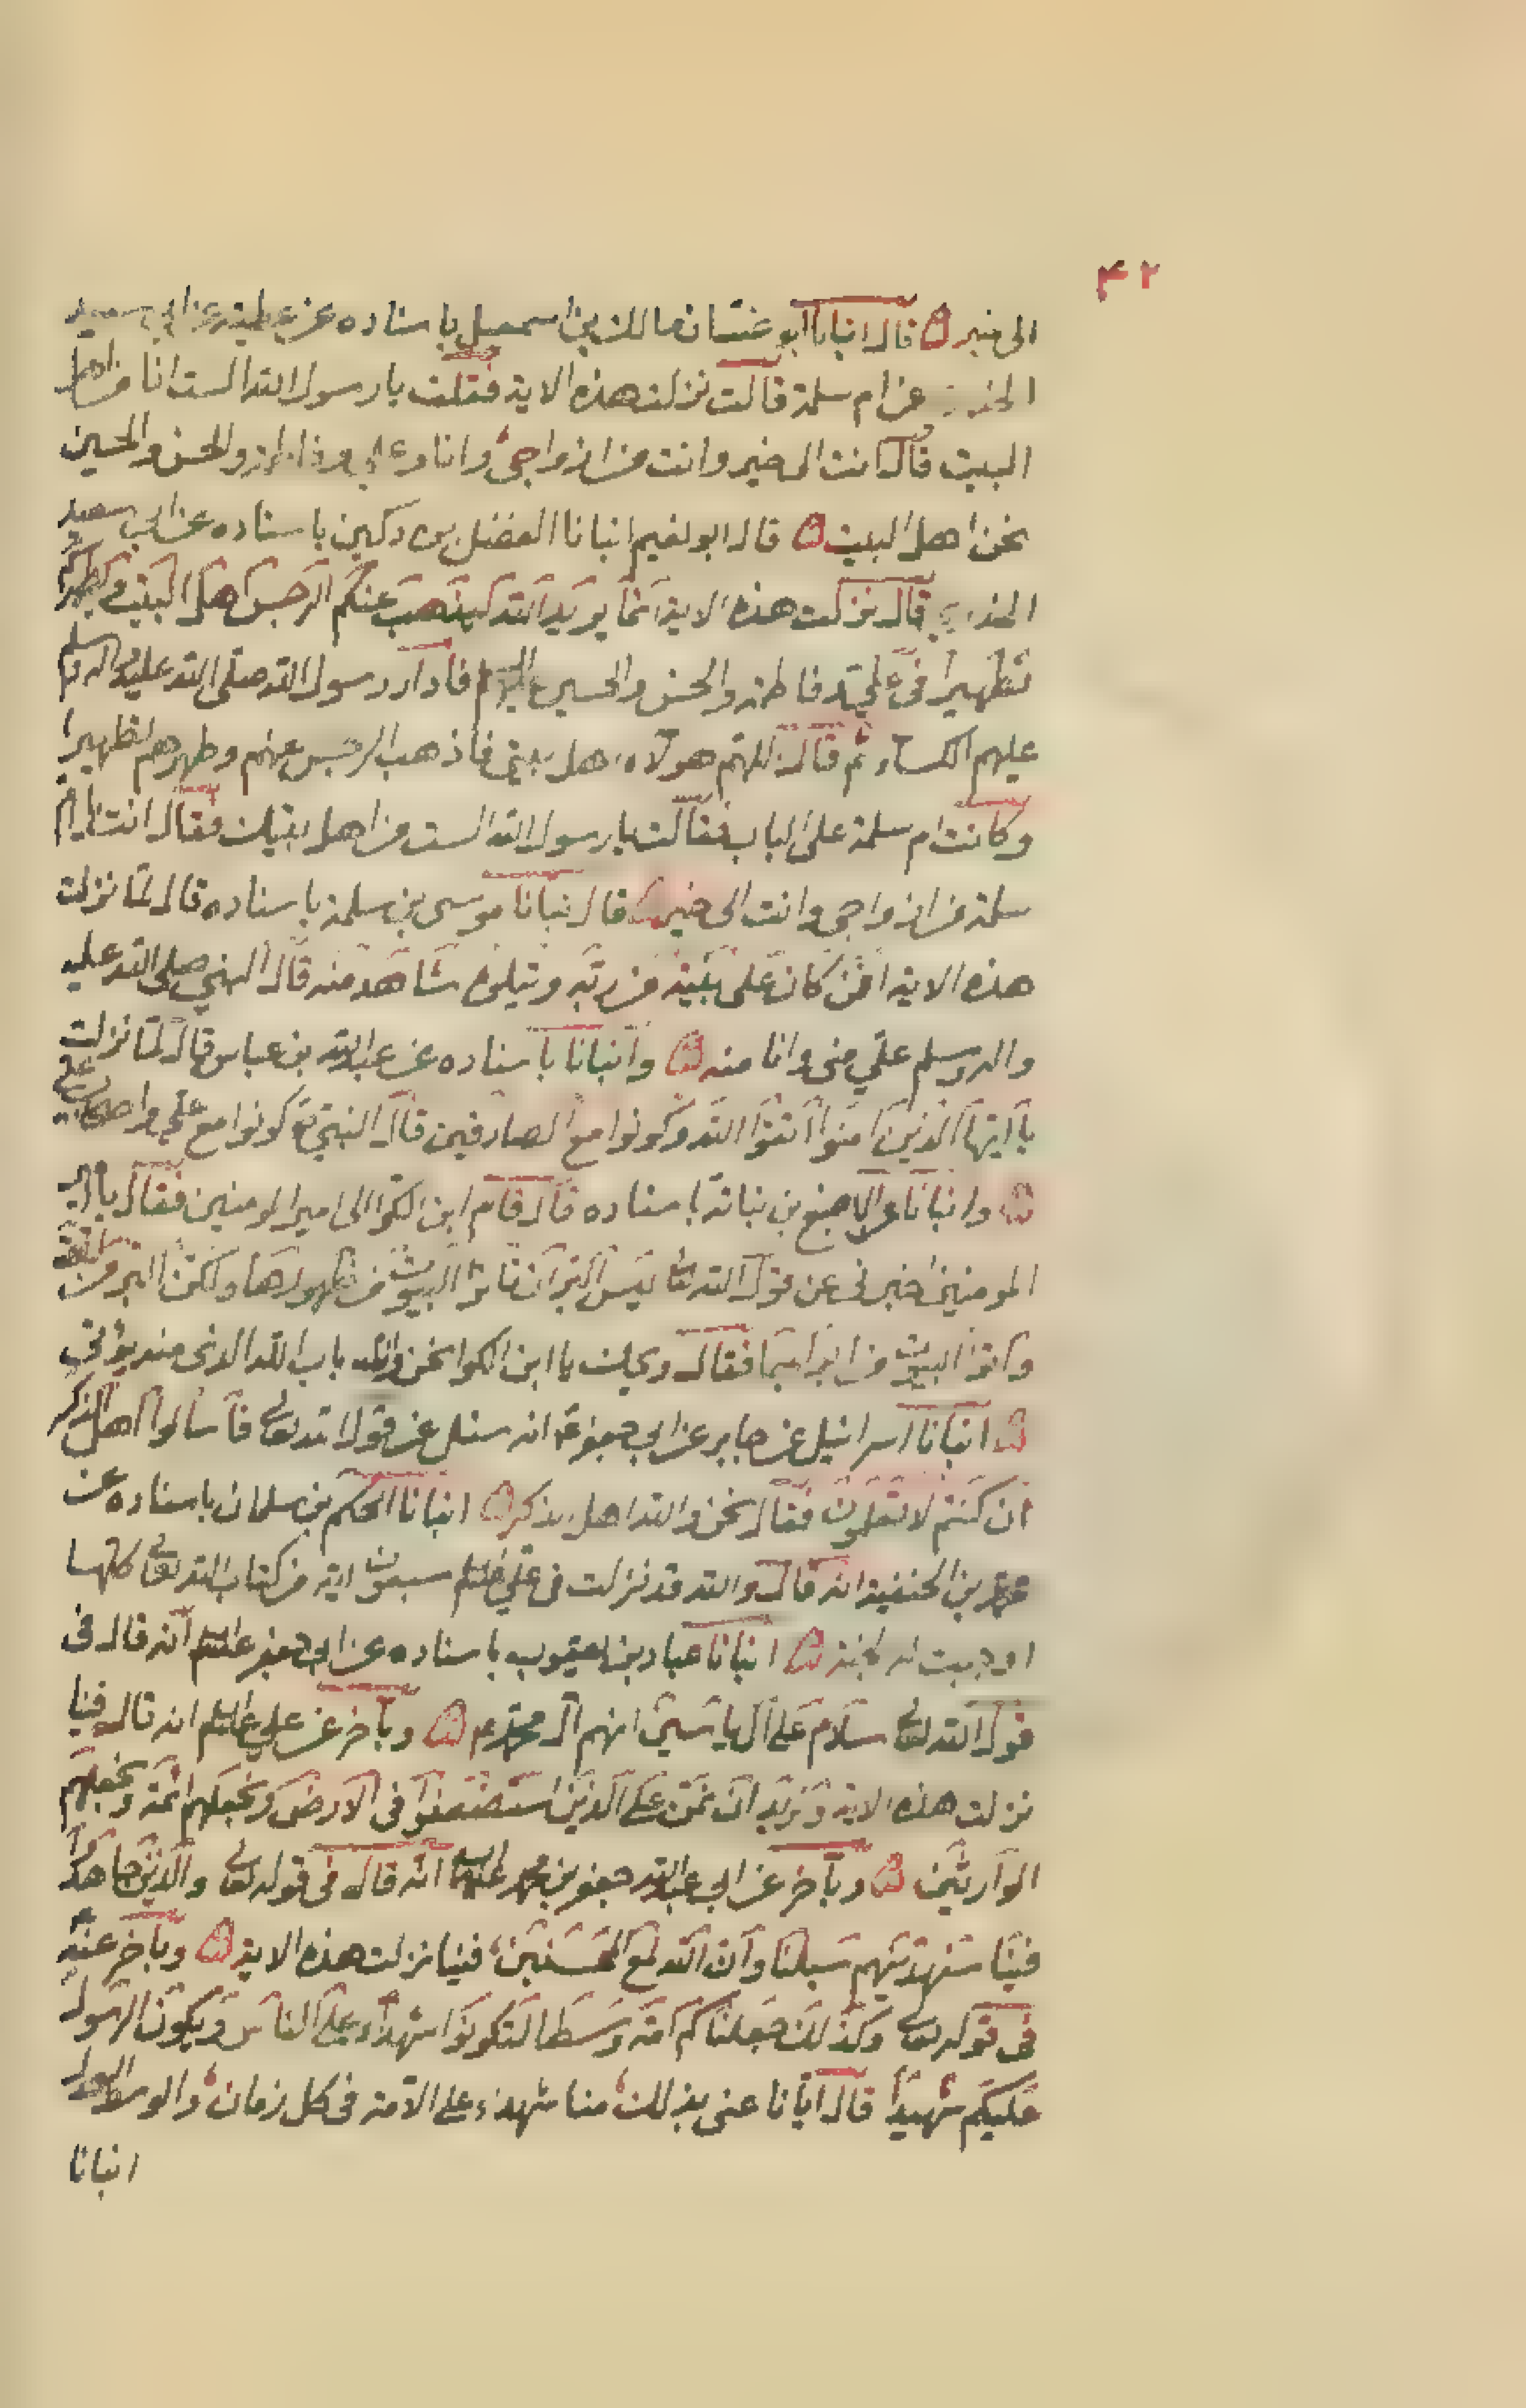 ۴۲
الى خير قال انبانا ابو غسان مالك بن اسمعيل باسناده عن عطية عن ابي سعيد
الخدري عن ام سلمة قالت نزلت هذه الاية فقلت يا رسول الله الست انا من اهل
البيت قال انت الى خير وانت من ازواجى وانا وعلي وفاطمة والحسن والحسين
نحن اهل البيت قال ابو نعيم انبانا الفضل بن دكين باسناده عن ابي سعيد
الخدري قال نزلت هذه الاية انما يريد الله ليذهب عنكم الرجس اهل البيت ويطهركم
تطهيرا في علي وفاطمة والحسن والحسين فادار رسول الله صلى الله عليه واله وسلم
عليهم الكساء ثم قال اللهم هولاء اهل بيتى فاذهب الرجس عنهم وطهرهم تطهيرا
وكانت ام سلمة على الباب فقالت يا رسول الله الست من اهل بيتك فقال انت يا ام
سلمة من ازواجى وانت الى خير قال انبانا موسى بن سلمة باسناده قال لما نزلت
هذه الاية افمن كان على بينة من ربه ويتلوه شاهد منه قال النبي صلى الله عليه
واله وسلم علي منى وانا منه وانبانا باسناده عن عبدالله بن عباس قال لما نزلت
يا ايها الذين امنوا اتقوا الله وكونوا مع الصادقين قال النبي كونوا مع علي واصحاب علي
وانبانا عن الاصبغ بن نباتة باسناده قال قام ابن الكوا الى امير المومنين فقال يا امير
المومنين اخبرنى عن قول الله ليس البر ان تاتوا البيوت من ظهورها ولكن البر من اتقى
واتوا البيوت من ابوابها فقال ويحك يا ابن الكوا نحن والله باب الله الذى منه يوتى
انبانا اسرائيل عن جابر عن ابي جعفر انه سئل عن قول الله تعالى فاسالوا اهل الذكر
ان كنتم لا تعلمون فقال نحن والله اهل الذكر انبانا الحكم بن سلمان باسناده عن
محمد بن الحنفية انه قال والله قد نزلت فى علي سبعون اية من كتاب الله تعالى كلها
اوجبت له الجنة انبانا عباد بن يعقوب باسناده عن ابي جعفر انه قال فى
قول الله تعالى سلام على آل ياسين انهم آل محمد وباخر عن علي انه قال فينا
نزلت هذه الاية ونريد ان نمن على الذين استضعفوا فى الارض ونجعلهم ائمة ونجعلهم
الوارثين وباخر عن ابي عبدالله جعفر بن محمد انه قال فى قوله تعالى والذين جاهدوا
فينا لنهدينهم سبلنا وان الله لمع المحسنين فينا نزلت هذه الاية وباخر عنه
فى قوله تعالى وكذلك جعلناكم امة وسطا لتكونوا شهداء على الناس ويكون الرسول
عليكم شهيدا قال ايانا عنى بذلك منا شهداء على الامة فى كل زمان
انبانا